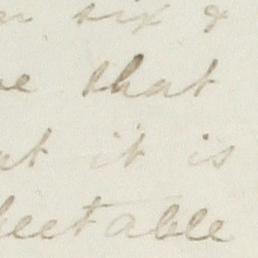 six &
that
at it is
ectable